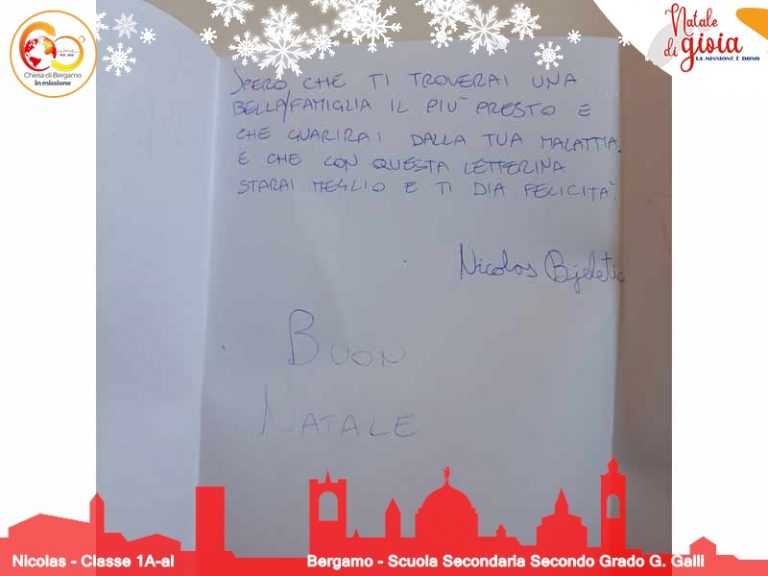 Chiesa di Bergamo
in missione
Natale
di gioia
LA MISSIONE È DONO
SPERO CHE TI TROVERAI UNA
BELLA FAMIGLIA IL PIU' PRESTO E
CHE GUARIRAI DALLA TUA MALATTIA
E CHE CON QUESTA LETTERINA
STARAI MEGLIO E TI DIA FELICITA'
Nicolas Bjeletic
BUON
NATALE
Nicolas - Classe 1A-al
Bergamo - Scuola Secondaria Secondo Grado G. Galli